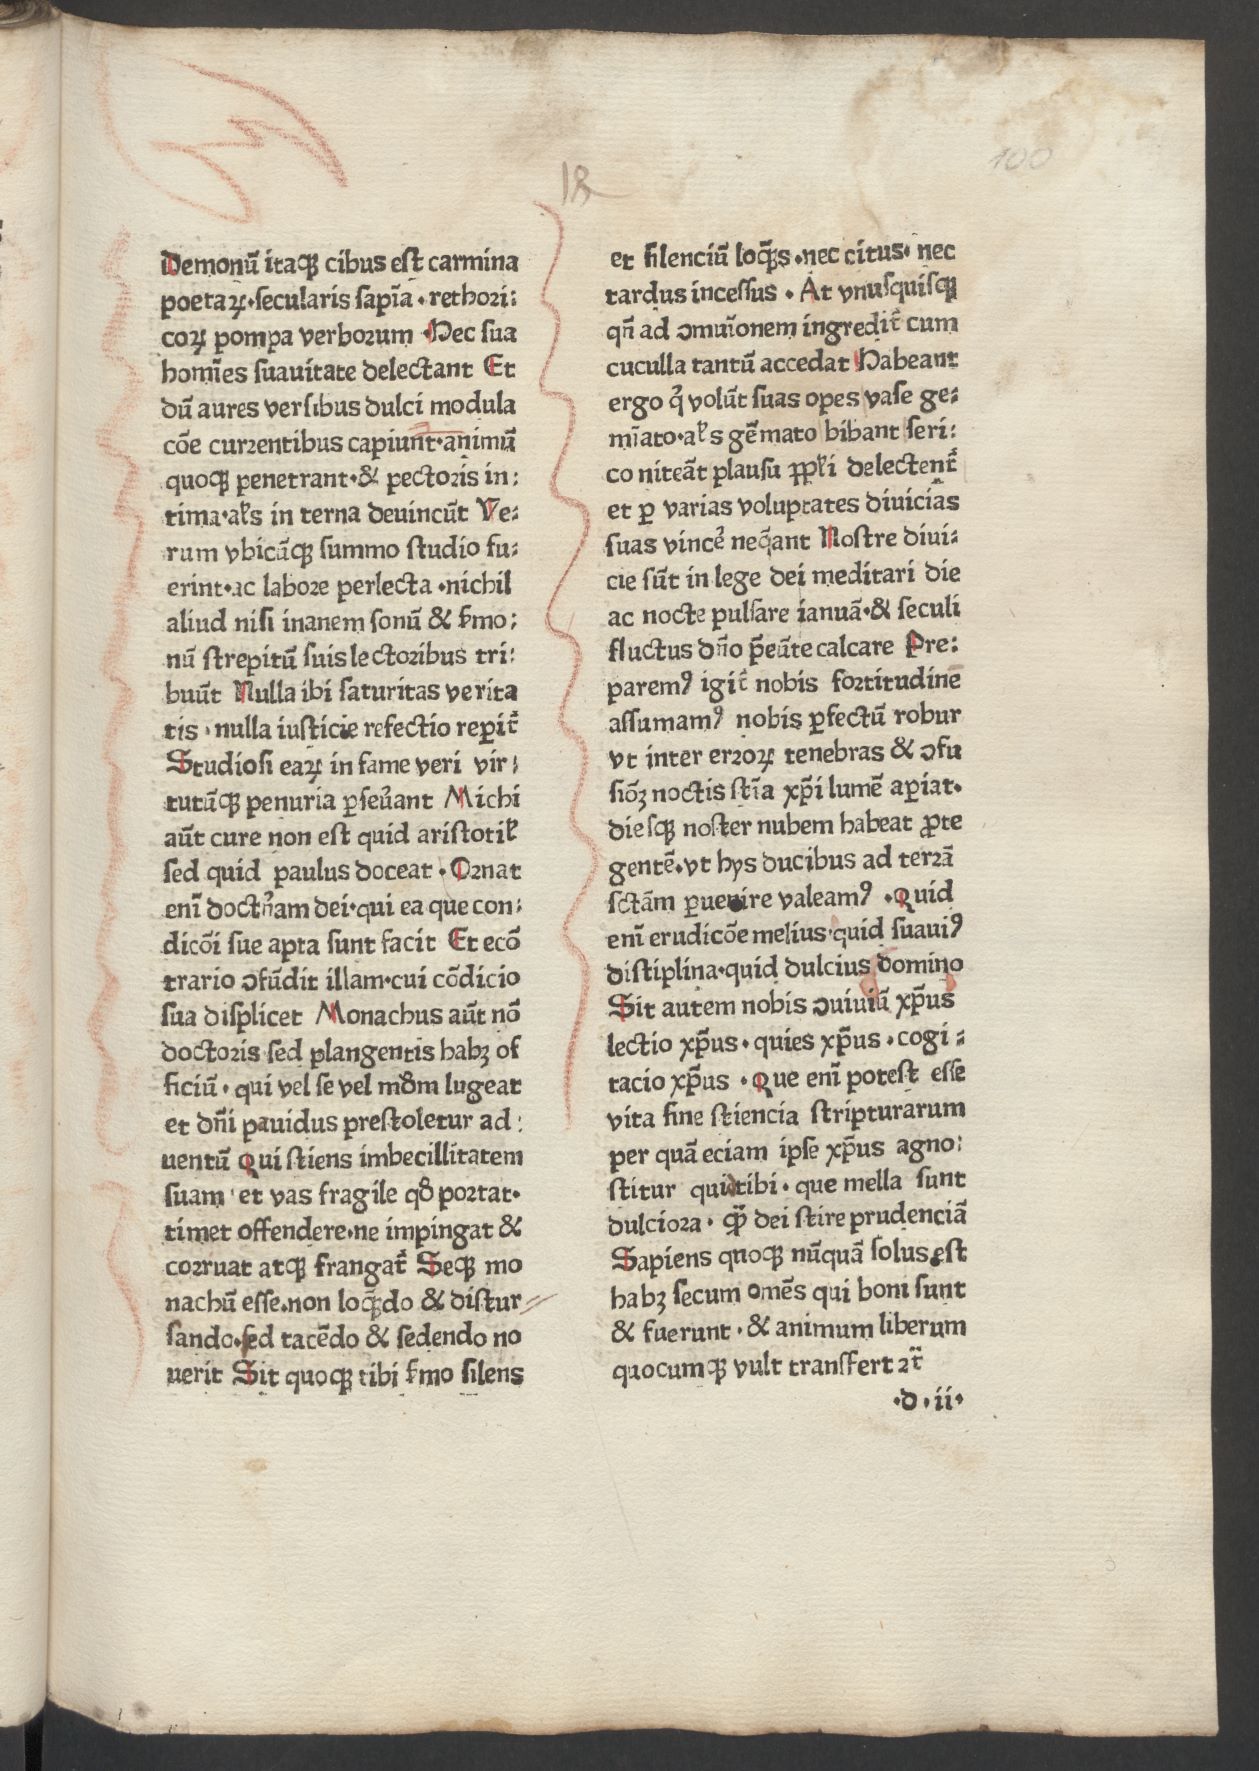 100
18
Demonū itaqꝫ cibus est carmina
poetaꝝ·secularis sapīa·rethori:
coꝝ pompa verborum·Hec sua
homīes suauitate delectant Et
dū aures versibus dulci modula
cōe currentibus capiunt·animū
quoqꝫ penetrant·& pectoris in:
tima·aƚs in terna deuincūt Ve:
rum vbicūqꝫ summo studio fu:
erint·ac labore perlecta·nichil
aliud nisi inanem sonū & ẜmo:
nū strepitū suis lectoribus tri:
buūt Nulla ibi saturitas verita
tis·nulla iusticie refectio reꝑit᷑
Studiosi eaꝝ in fame veri vir:
tutūqꝫ penuria ꝑseu̾ant Michi
aūt cure non est quid aristotiƚ
sed quid paulus doceat·Ornat
enī doctr̄nam dei·qui ea que con:
dicōi sue apta sunt facit Et ecō
trario ↄfūdit illam·cui cōdicio
sua displicet Monachus aūt nō
doctoris sed plangentis habꝫ of
ficiū·qui vel se vel mōm lugeat
et dn̄i pauidus prestoletur ad:
uentū Qui stiens imbecillitatem
suam·et vas fragile qđ portat·
timet offendere·ne impingat &
corruat atqꝫ frangat᷑ Seqꝫ mo
nachū esse·non loq̄do & distur
sando·sed tacēdo & sedendo no
uerit Sit quoqꝫ tibi ẜmo silens
et silenciū loq̄ns·nec citus·nec
tardus incessus·At vnusquisqꝫ
qn̄ ad ↄmuīonem ingredit᷑ cum
cuculla tantū accedat Habeant
ergo qͥ volūt suas opes vase ge:
mīato·aƚs gēmato bibant seri:
co niteāt plausu ꝓpƚi delectent᷑
et ꝑ varias voluptates diuicias
suas vince᷑ neq̄ant Nostre diui:
cie sūt in lege dei meditari die
ac nocte pulsare ianuā·& seculi
fluctus dn̄o p̄eūte calcare Pre:
paremꝰ igit᷑ nobis fortitudinē
assumamꝰ nobis ꝑfectū robur
vt inter erroꝝ tenebras & ↄfu
siōꝫ noctis stīa xp̄i lumē aperiat·
diesqꝫ noster nubem habeat ꝓte
gentē·vt hys ducibus ad terrā
sctām ꝑuenire valeamꝰ·Quid
enī erudicōe melius·quid suauiꝰ
distiplina·quid dulcius domino
Sit autem nobis ↄuiuiū xp̄us
lectio xp̄us·quies xp̄us·cogi:
tacio xp̄us·Que enī potest esse
vita sine stiencia stripturarum
per quā eciam ipse xp̄us agno:
stitur quid tibi·que mella sunt
dulciora·qꝫ̄ dei stire prudenciā
Sapiens quoqꝫ nūquā solus est
habꝫ secum omēs qui boni sunt
& fuerunt·& animum liberum
quocumqꝫ vult transfert ꝛc̄
·d·ii·